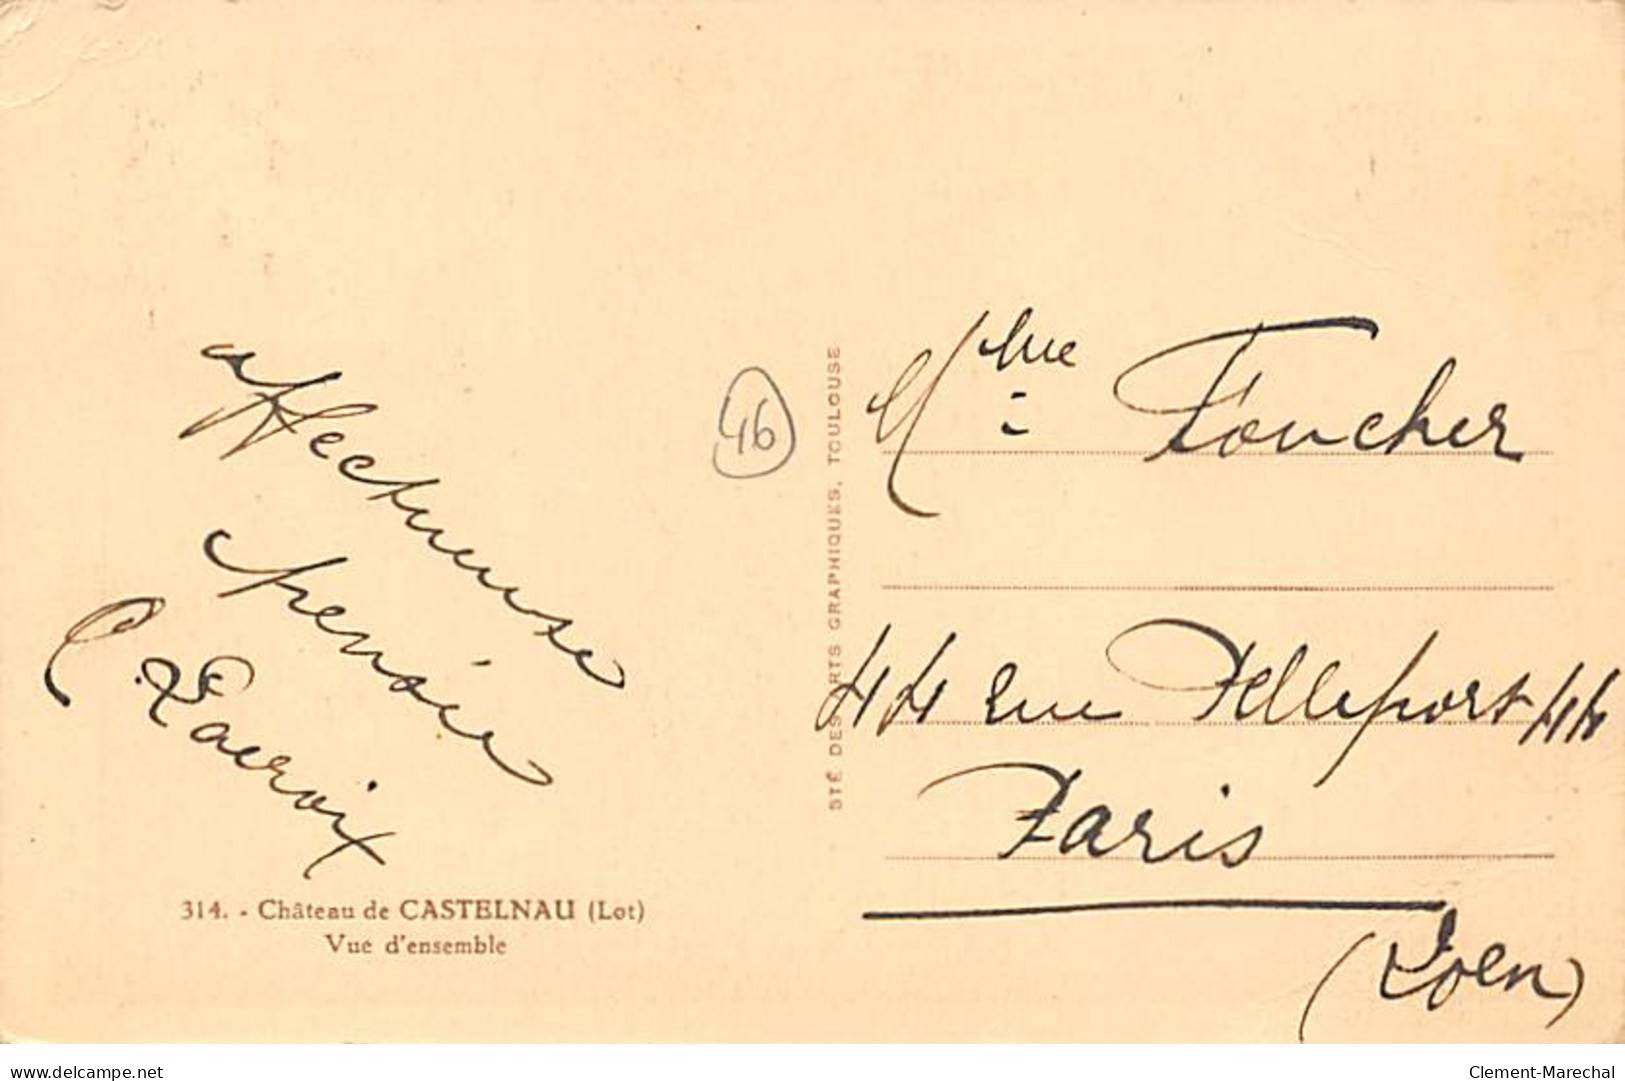 affectueuse
pensée
C. Lacroix
314. - Château de CASTELNAU (Lot)
Vue d'ensemble
46
STÉ DES ARTS GRAPHIQUES, TOULOUSE
Mlle Foucher
44 rue Pelleport 44
Paris
delcampe.net
Clement-Marechal